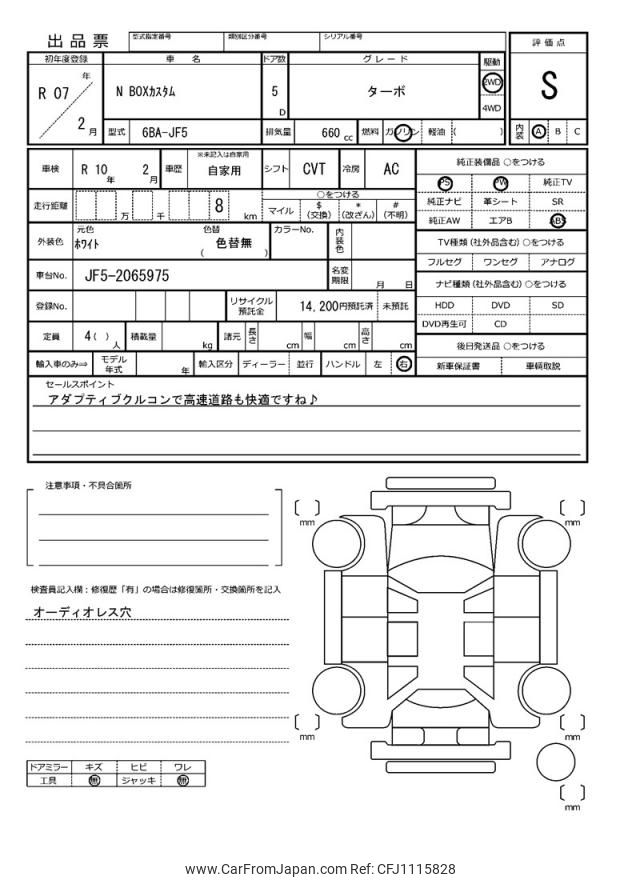 出品票
型式指定番号 類別区分番号 シリアル番号
評価点
S
内装 A B C
初年度登録 車名 ドア数 グレード 駆動
R 07 年 2 月
N BOXカスタム 5 D ターボ 2WD 4WD
型式 6BA-JF5 排気量 660 cc 燃料 ガソリン 軽油 ( )
車検 R 10 年 2 月 車歴 ※未記入は自家用 自家用 シフト CVT 冷房 AC
純正装備品 ○をつける
PS PW 純正TV
純正ナビ 革シート SR
純正AW エアB ABS
走行距離 万 千 8 km
○をつける
マイル $(交換) *(改ざん) #(不明)
外装色 元色 ホワイト 色替 色替無 ( ) カラーNo. 内装色
TV種類(社外品含む) ○をつける
フルセグ ワンセグ アナログ
車台No. JF5-2065975 名変期限 月 日
ナビ種類(社外品含む) ○をつける
HDD DVD SD
DVD再生可 CD
登録No. リサイクル預託金 14,200円預託済 未預託
定員 4( ) 人 積載量 kg 諸元 長さ cm 幅 cm 高さ cm
後日発送品 ○をつける
新車保証書 車輌取説
輸入車のみ⇒ モデル年式 年 輸入区分 ディーラー 並行 ハンドル 左 右
セールスポイント
アダプティブクルコンで高速道路も快適ですね♪
注意事項・不具合箇所
検査員記入欄:修復歴「有」の場合は修復箇所・交換箇所を記入
オーディオレス穴
mm
mm
mm
mm
mm
ドアミラー キズ ヒビ ワレ
工具 無 ジャッキ 無
www.CarFromJapan.com Ref: CFJ1115828